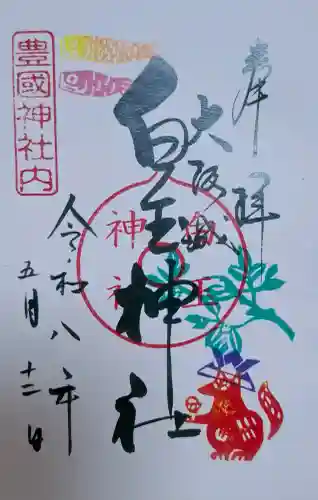 奉拝
大阪城
白玉神社
令和八年
五月十二日
豊國神社内
白玉
神社